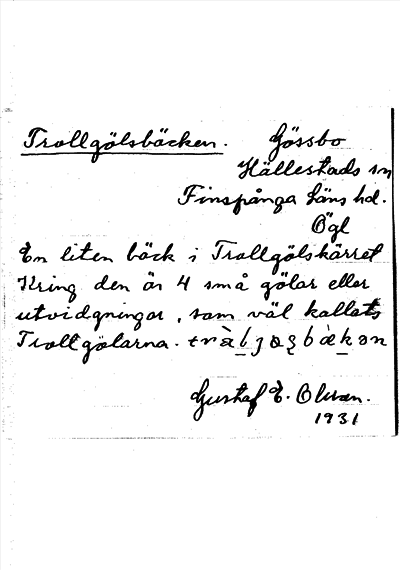 Trollgölsbäcken. Gössbo
Hällestads sn
Finspånga läns hd.
Ögl
En liten bäck i Trollgölskärret
Kring den är 4 små gölar eller
utvidgningar, som väl kallats
Trollgölarna.
Gustaf E. Olsson.
1931